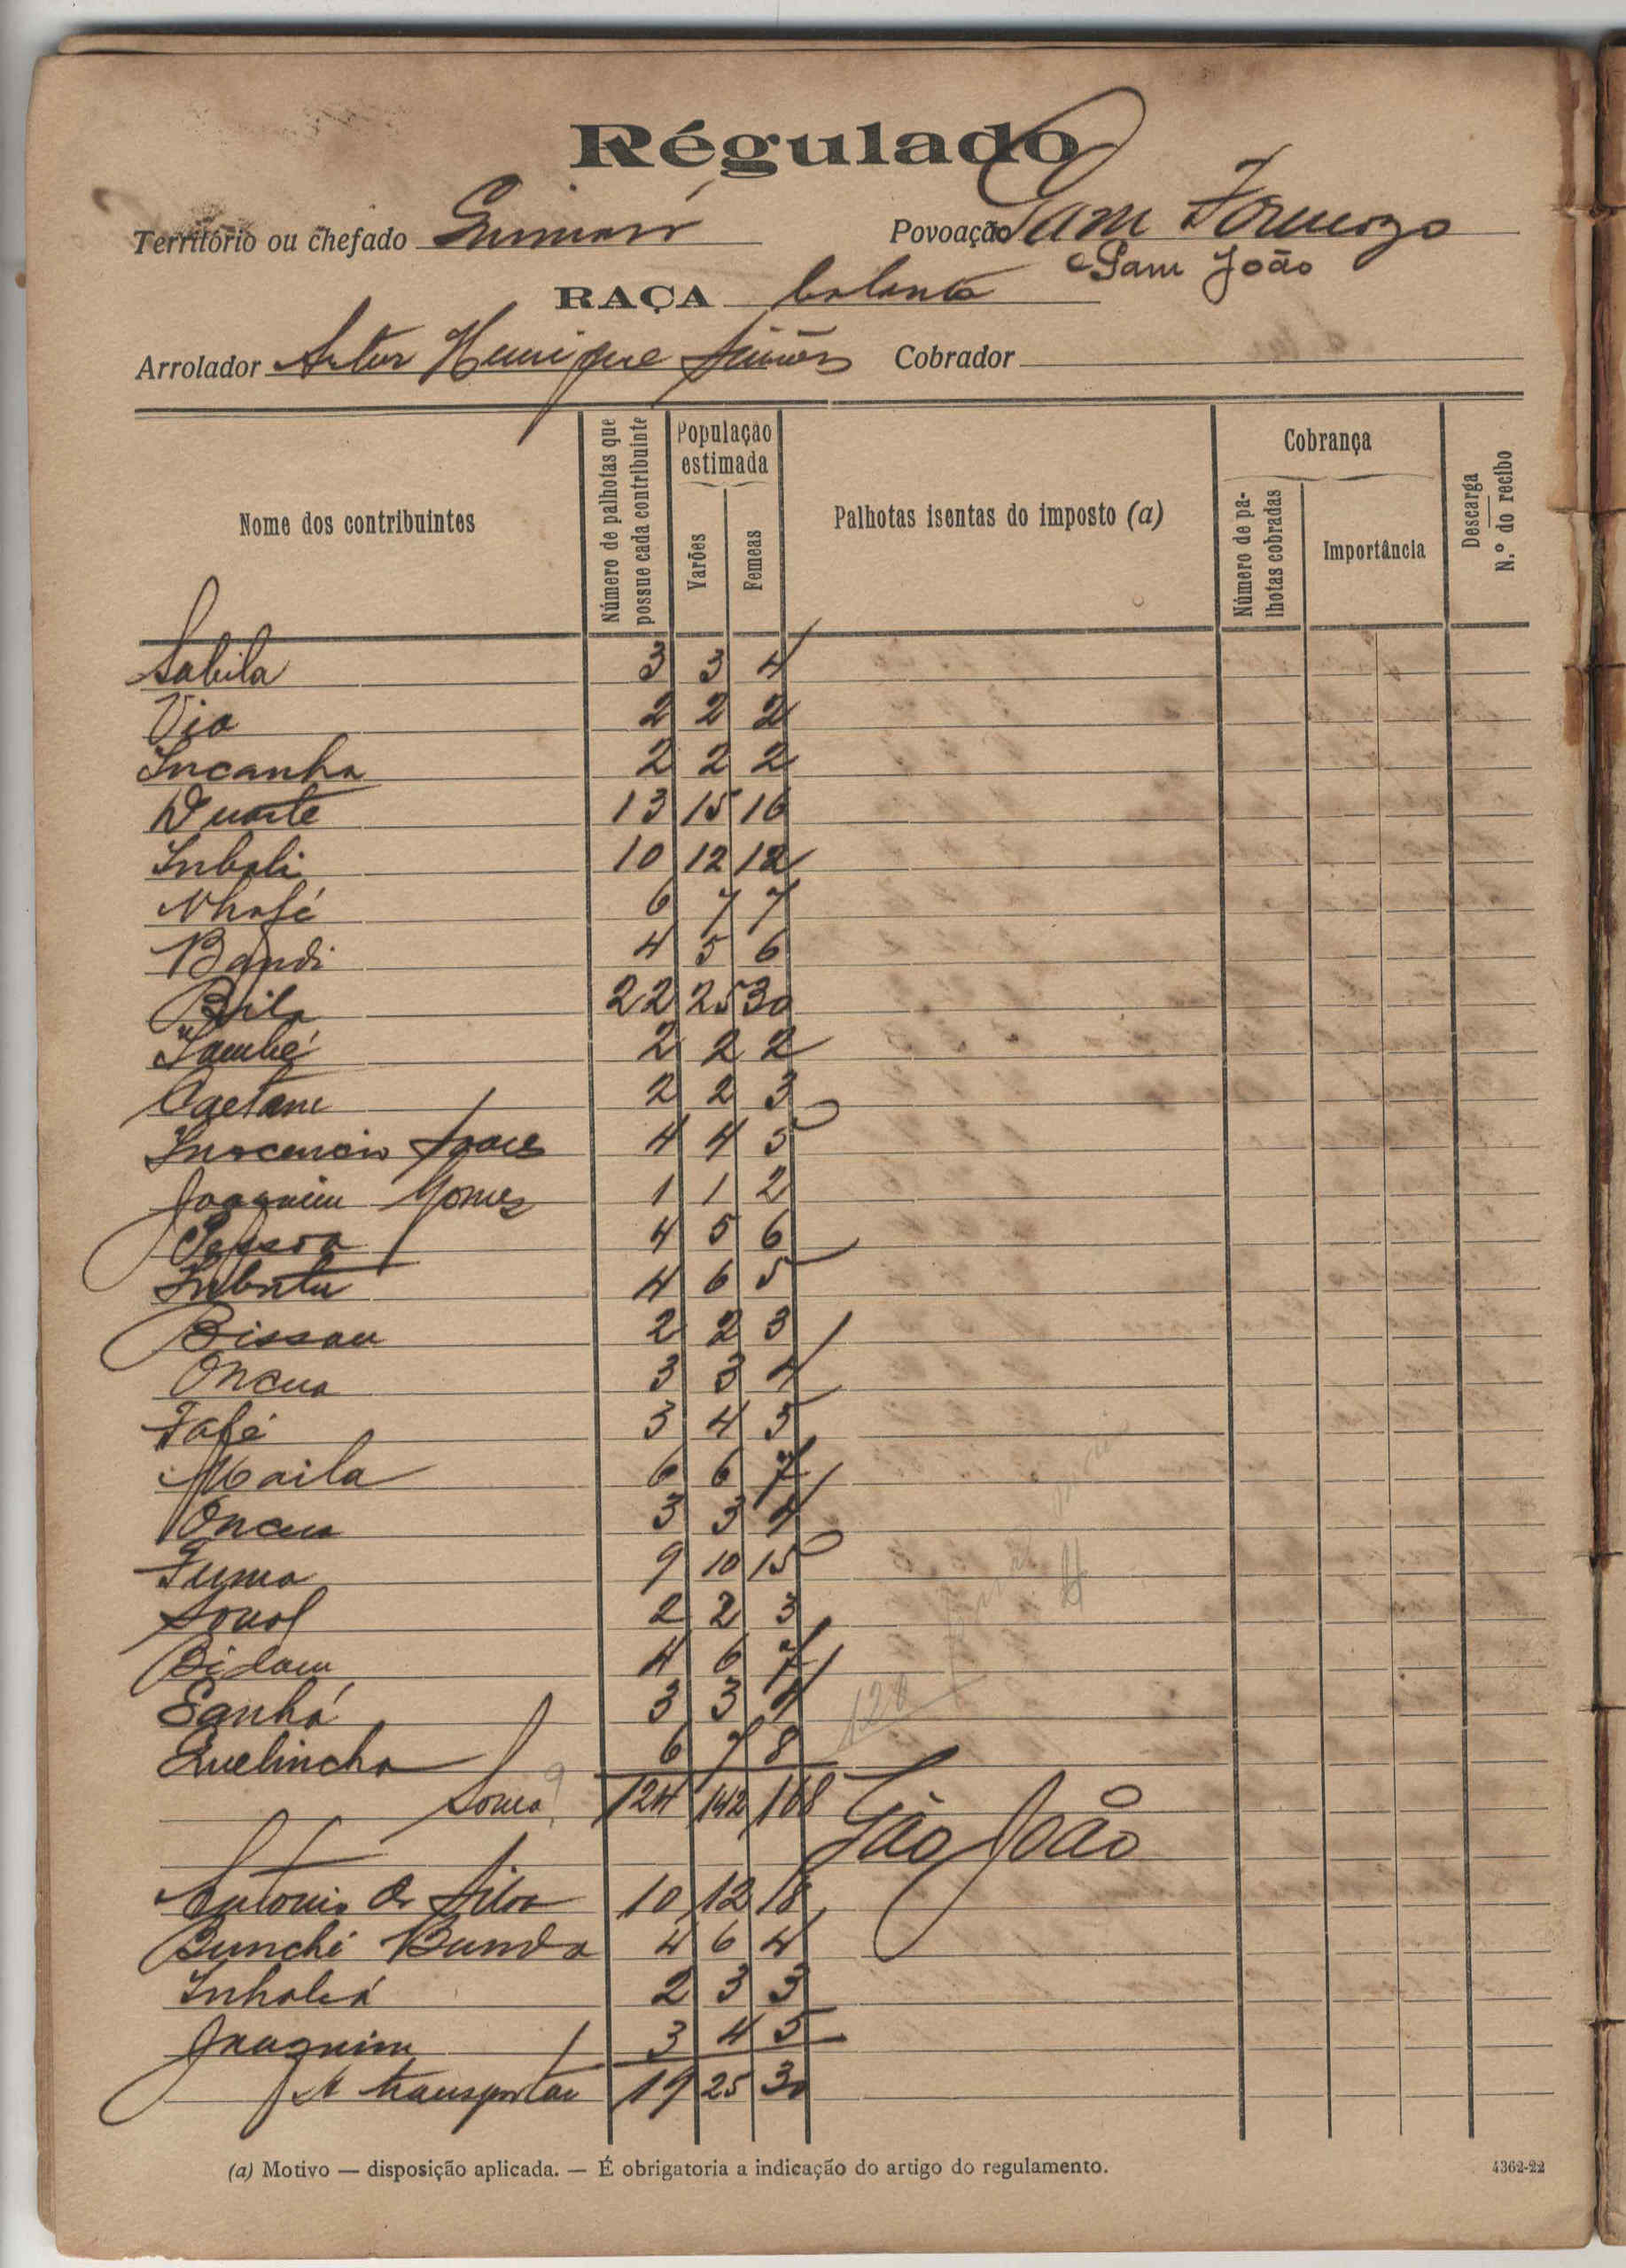 Régulado
Território ou chefado
Povoação Gam Formozo
e Gam João
RAÇA balanta
Arrolador Artur Henrique Simões Cobrador
Nome dos contribuintes
Número de palhotas que possue cada contribuinte
População estimada
Varões
Femeas
Palhotas isentas do imposto (a)
Cobrança
Número de palhotas cobradas
Importância
Descarga
N.º do recibo
Sabila 3 3 4
Via 2 2 2
Incanha 2 2 2
Duarte 13 15 16
Inbali 10 12 12
Nhafé 6 7 7
Bandi 4 5 6
Bila 22 25 30
També 2 2 2
Caetano 2 2 3
Inocencio Soares 4 4 5
Joaquim Gomes 1 1 2
Pessoa 4 5 6
4 6 5
Bissau 2 2 3
Oncua 3 3 4
Fafé 3 4 5
Maila 6 6 7
Oncua 3 3 4
Fuma 9 10 15
2 2 3
Bidam 4 6 7
Sanhá 3 3 4
Quelincha 6 7 8
128
Soma 124 142 168
São João
Antonio da Silva 10 12 18
Bunchi Bunda 4 6 4
2 3 3
Joaquim 3 4 5
A transportar 19 25 30
(a) Motivo — disposição aplicada. — É obrigatoria a indicação do artigo do regulamento.
4362-22